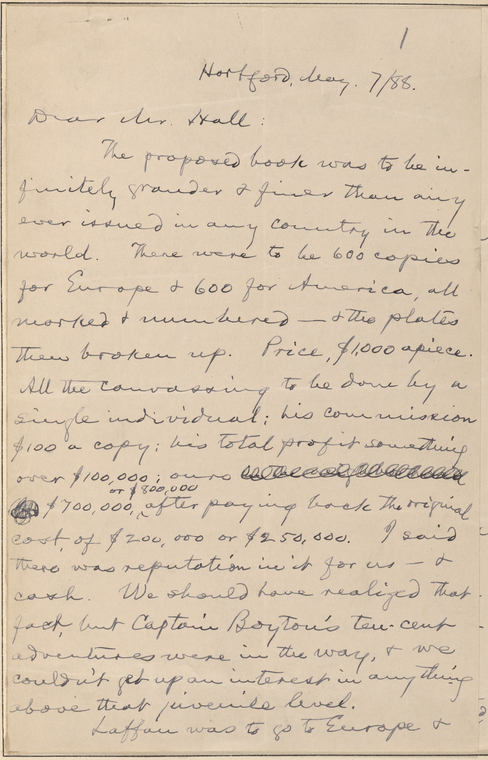 1
Hartford, May. 7/88.
Dear Mr. Hall:
The proposed book was to be in-
finitely grander & finer than any
ever issued in any country in the
world. There were to be 600 copies
for Europe & 600 for America, all
marked & numbered — & the plates
then broken up. Price, $1,000 apiece.
All the canvassing to be done by a
single individual; his commission
$100 a copy; his total profit something
over $100,000; ours
or $800,000
$700,000, after paying back the original
cost, of $200,000 or $250,000. I said
there was reputation in it for us — &
cash. We should have realized that
fact, but Captain Boyton's ten-cent
adventures were in the way, & we
couldn't get up an interest in anything
above that juvenile level.
Laffan was to go to Europe &